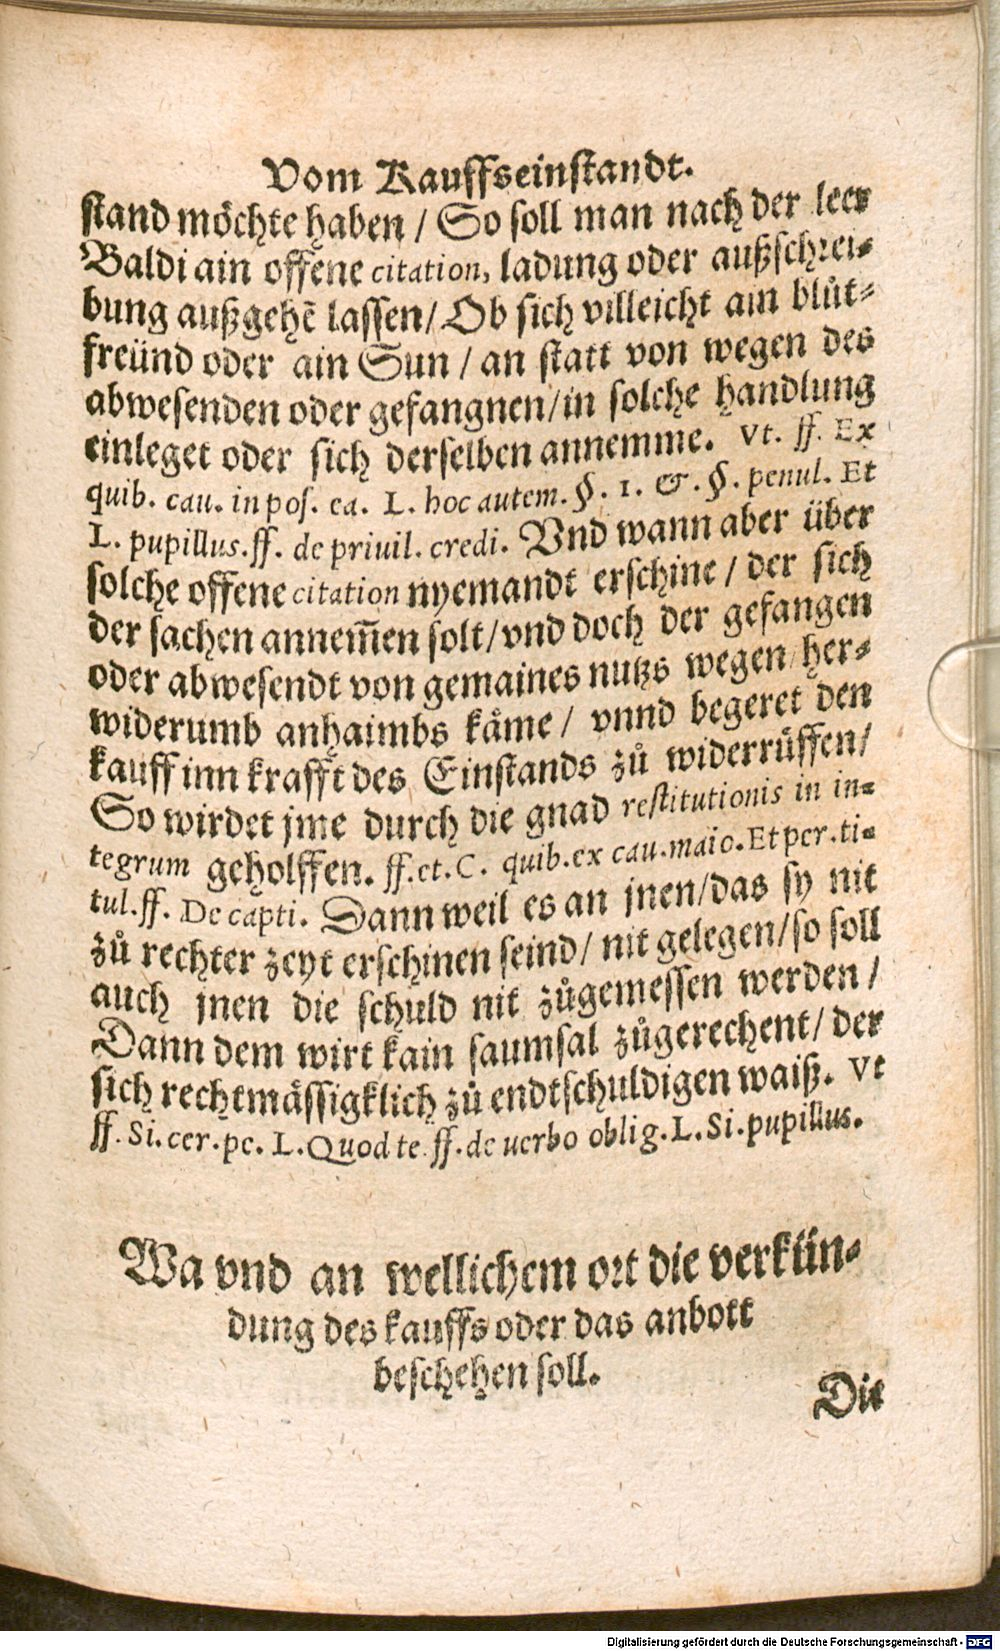 Vom Kauffseinstandt.
stand möchte haben / So soll man nach der leer
Baldi ain offene citation, ladung oder außschrei-
bung außgehē lassen / Ob sich villeicht ain blůt-
freünd oder ain Sun / an statt von wegen des
abwesenden oder gefangnen / in solche handlung
einleget oder sich derselben annemme. Vt. ff. Ex
quib. cau. in pos. ea. L. hoc autem. §. 1. &. §. penul. Et
L. pupillus. ff. de priuil. credi. Vnd wann aber über
solche offene citation nyemandt erschine / der sich
der sachen annem̄en solt / vnd doch der gefangen
oder abwesendt von gemaines nutzs wegen / her-
widerumb anhaimbs kåme / vnnd begeret den
kauff inn krafft des Einstands zů widerrůffen /
So wirdet jme durch die gnad restitutionis in in-
tegrum geholffen. ff. et. C. quib. ex cau. maio. Et per. ti-
tul. ff. De capti. Dann weil es an jnen / das sy nit
zů rechter zeyt erschinen seind / nit gelegen / so soll
auch jnen die schuld nit zůgemessen werden /
Dann dem wirt kain saumsal zůgerechent / der
sich rechtmåssigklich zů endtschuldigen waiß. Vt
ff. Si. cer. pe. L. Quod te. ff. de uerbo oblig. L. Si. pupillus.
Wa vnd an wellichem ort die verkün-
dung des kauffs oder das anbott
beschehen soll.
Die
Digitalisierung gefördert durch die Deutsche Forschungsgemeinschaft - DFG